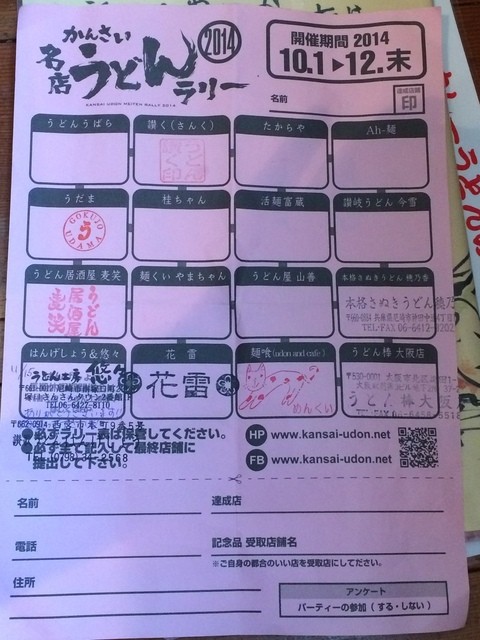 かんさい
名店 うどん ラリー 2014
KANSAI UDON MEITEN RALLY 2014
開催期間 2014
10.1▶12.末
名前
達成店舗
印
うどんうばら 讃く(さんく) たからや Ah-麺
うだま 桂ちゃん 活麺富蔵 讃岐うどん 今雪
GOKUJO う UDAMA
うどん居酒屋 麦笑 麺くいやまちゃん うどん屋 山善 本格さぬきうどん 穂乃香
うどん居酒屋麦笑
本格さぬきうどん穂乃
TEL・FAX 06-6412-8202
はんげしょう&悠々 花雷 麺喰(udon and cafe) うどん棒 大阪店
うどん工房 悠々
塚口さんさんタウン2番館1F
TEL06-6427-8110
花雷
めんくい
〒530-0001 大阪市北区
うどん棒 大阪
〒662-0914
●必ずラリー表は保管してください。
●必ず全て記入して最終店舗に
提出して下さい。
HP www.kansai-udon.net
FB www.kansai-udon.net
名前
達成店
電話
記念品 受取店舗名
※ご自身の都合のいい店を受取店にしてください。
住所
アンケート
パーティーの参加 ( する・しない )